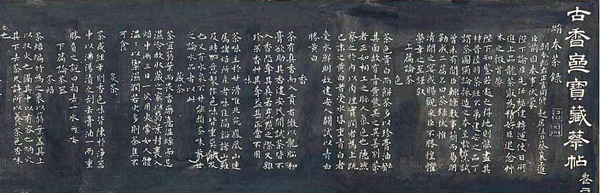 古香齋寶藏蔡帖 卷二
進奉茶錄
朝奉郎右正言同修起居注臣蔡襄上進
臣前因奏事伏蒙
陛下諭臣先任福建轉運使日所
進上品龍茶最為精好臣退念草
木之微首辱
陛下知鑒若處之得地則能盡其
謂茶圖獨論採造之本至於烹試
曾未有聞臣輒條數事簡而易明
勒成二篇名曰茶錄伏惟
清閒之宴或賜觀采臣不勝惶懼
榮幸之至謹敘
上篇論茶
色
茶色貴白而餅茶多以珍膏油
其面故有青黃紫黑之異善別茶
者正如相工之視人氣色也隱然
察之於內以肉理潤者為上既
已末之黃白者受水昏重青白者
受水鮮明故建安人鬬試以青白
勝黃白
香
茶有真香而入貢者微以龍腦和
膏欲助其香建安民間試茶皆不
入香恐奪其真若烹點之際又雜
珍果香草其奪益甚正當不用
味
茶味主於甘滑惟北苑鳳凰山連
屬諸焙所產者味佳隔谿諸山雖
及時加意製作色味皆重莫能及
也又有水泉不甘能損茶味前世
之論水品者以此
藏茶
茶宜蒻葉而畏香藥喜溫燥而忌
濕冷故收藏之家以蒻葉封裹入
焙中兩三日一次用火常如人體
溫溫則禦濕潤若火多則茶焦不
可食
炙茶
茶或經年則香色味皆陳於淨器
中以沸湯漬之刮去膏油一兩重
勝負之說相去一水兩水
下篇論茶器
茶焙
茶焙編竹為之裹以蒻葉蓋其上
以收火也隔其中以有容也納火
其下去茶尺許所以養茶色香味
也